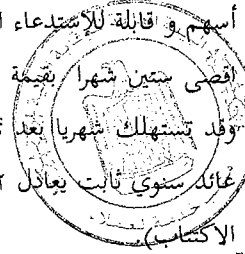 أسهم و قابلة للإستدعاء ا
اقصى ستين شهرا بقيمة
وقد تستهلك شهريا بعد
عائد سنوي ثابت يعادل
الاكتتاب).